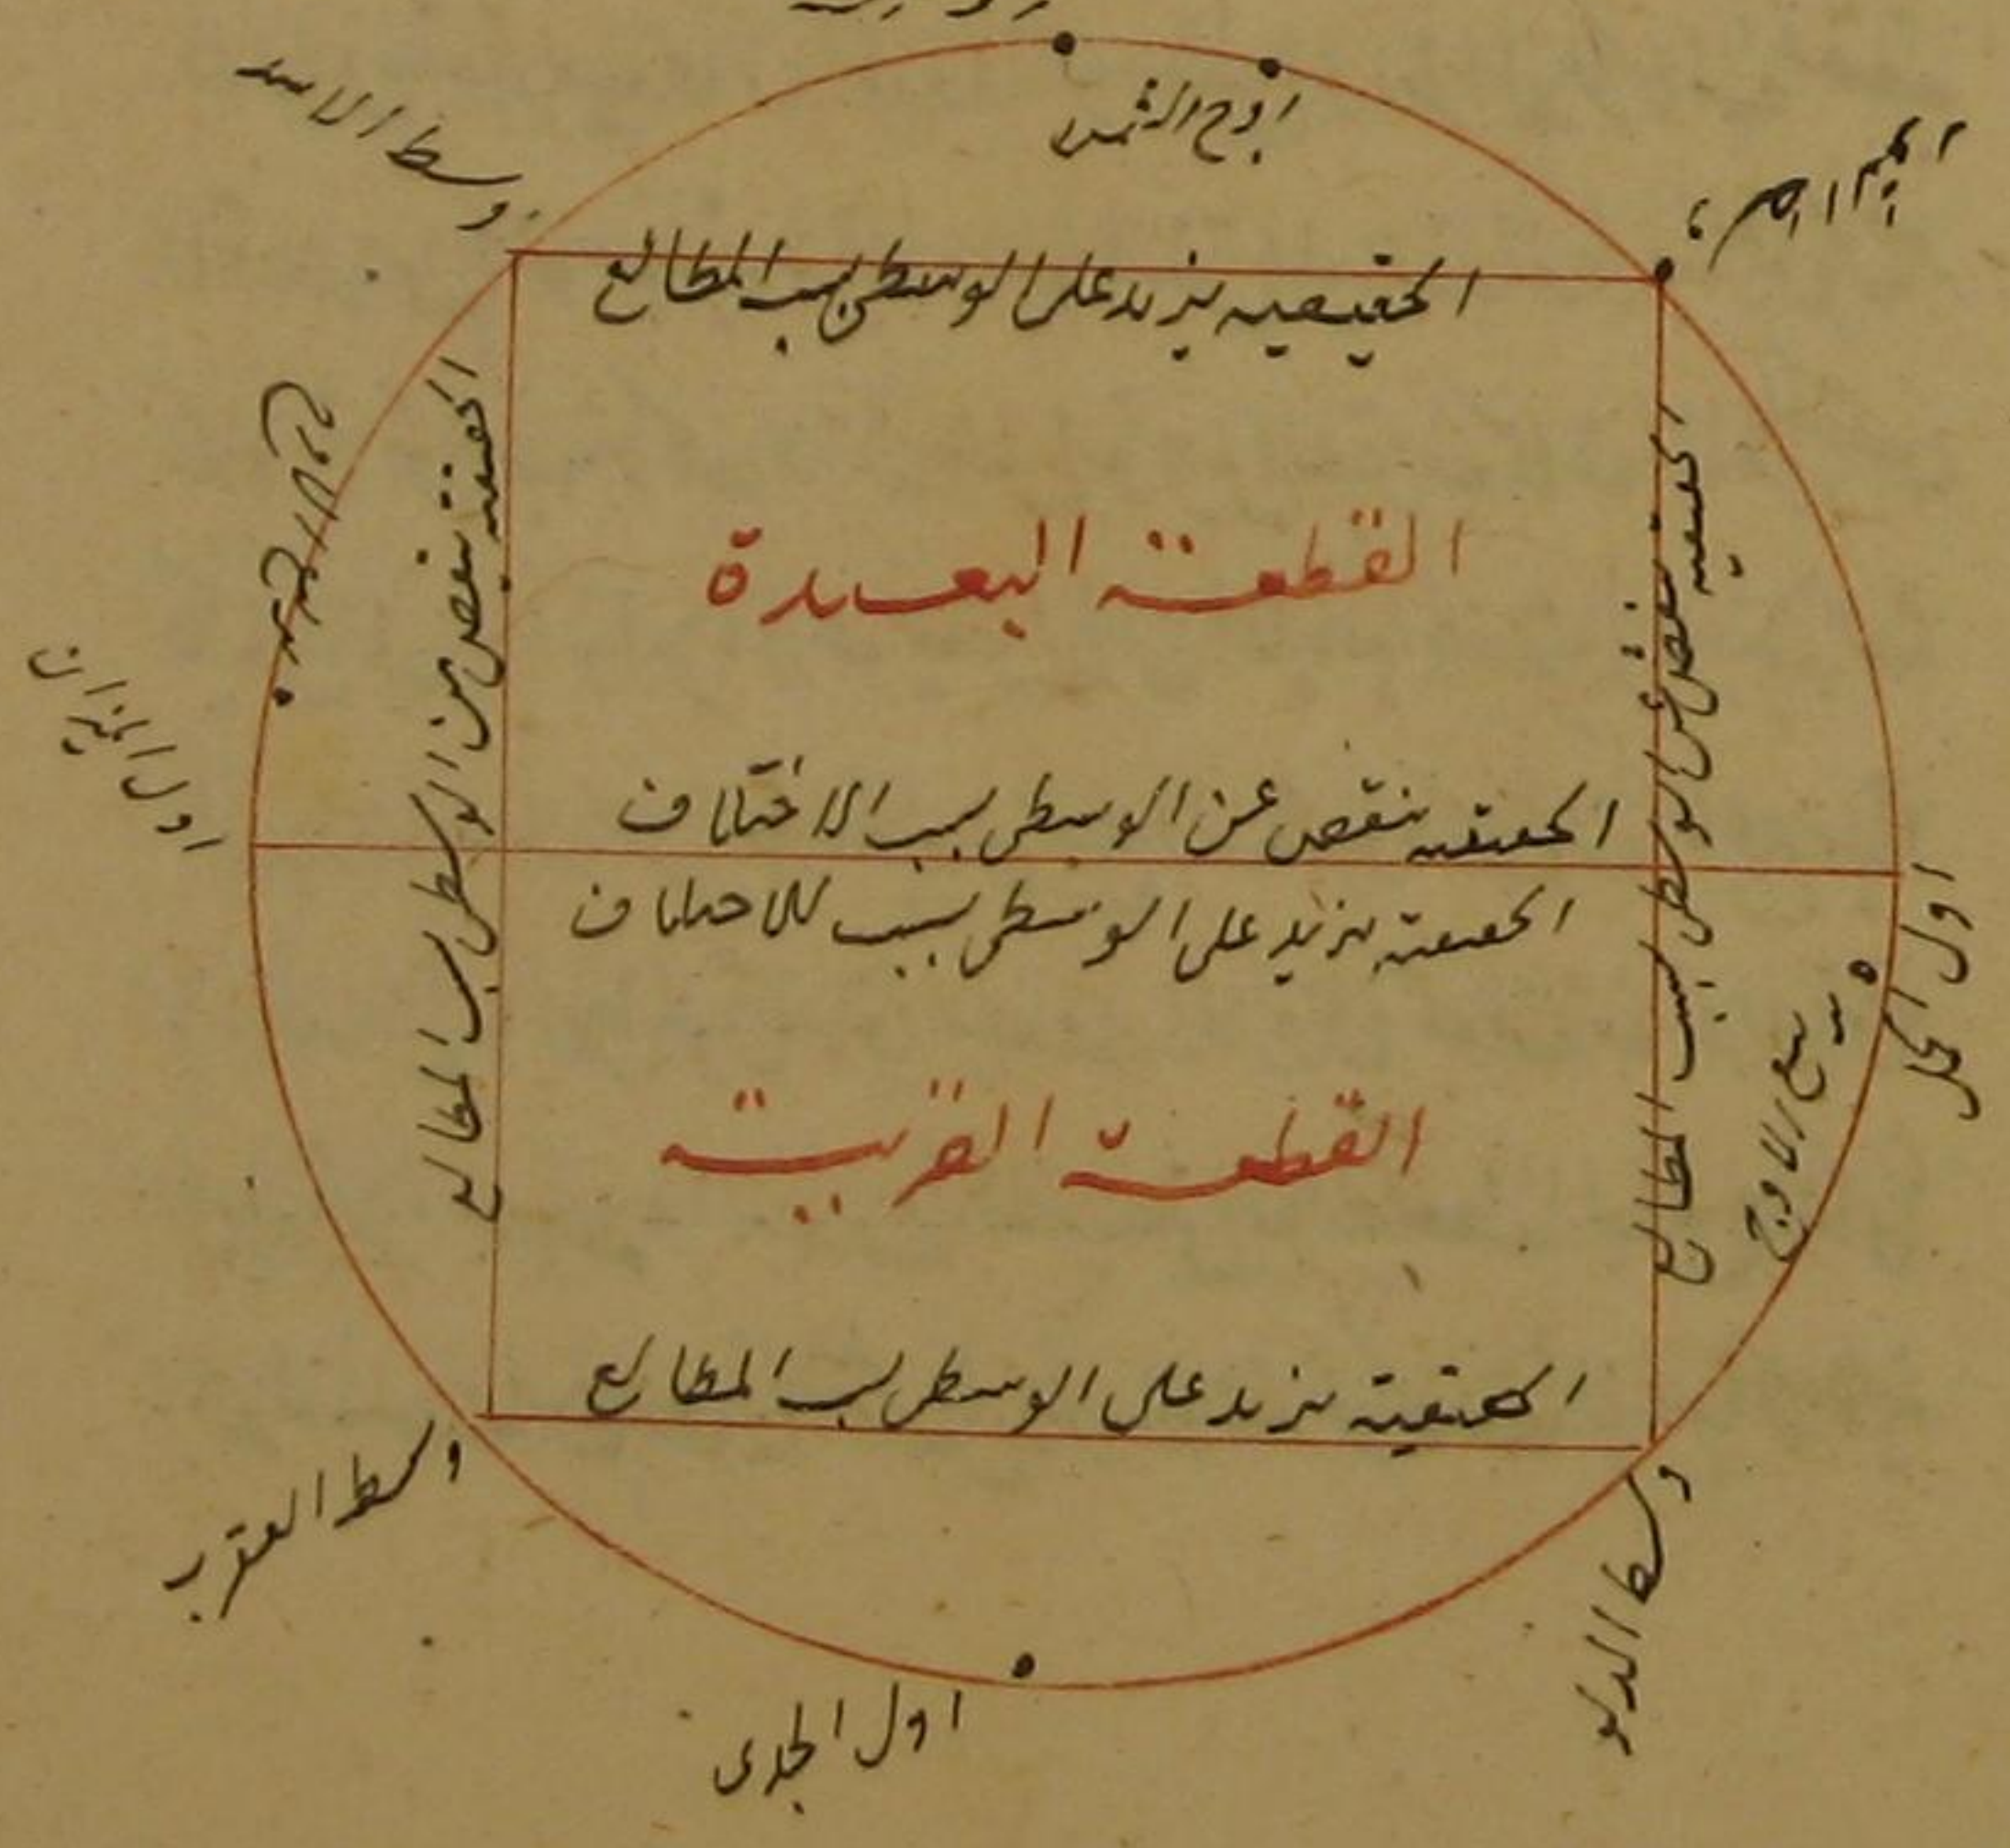 اوج الشمس
وسط الاسد
الحقيقية يزيد على الوسطى بسبب المطالع
الحقيقية ينقص من الوسطى بسبب المطالع
الحقيقية ينقص عن الوسطى بسبب المطالع
القطعة البعيدة
اول الميزان
الحقيقية ينقص عن الوسطى بسبب الاختلاف
الحقيقية يزيد على الوسطى بسبب الاختلاف
اول الحمل
الاوج
القطعة القريبة
الحقيقية يزيد على الوسطى بسبب المطالع
وسط العقرب
وسط الدلو
اول الجدى